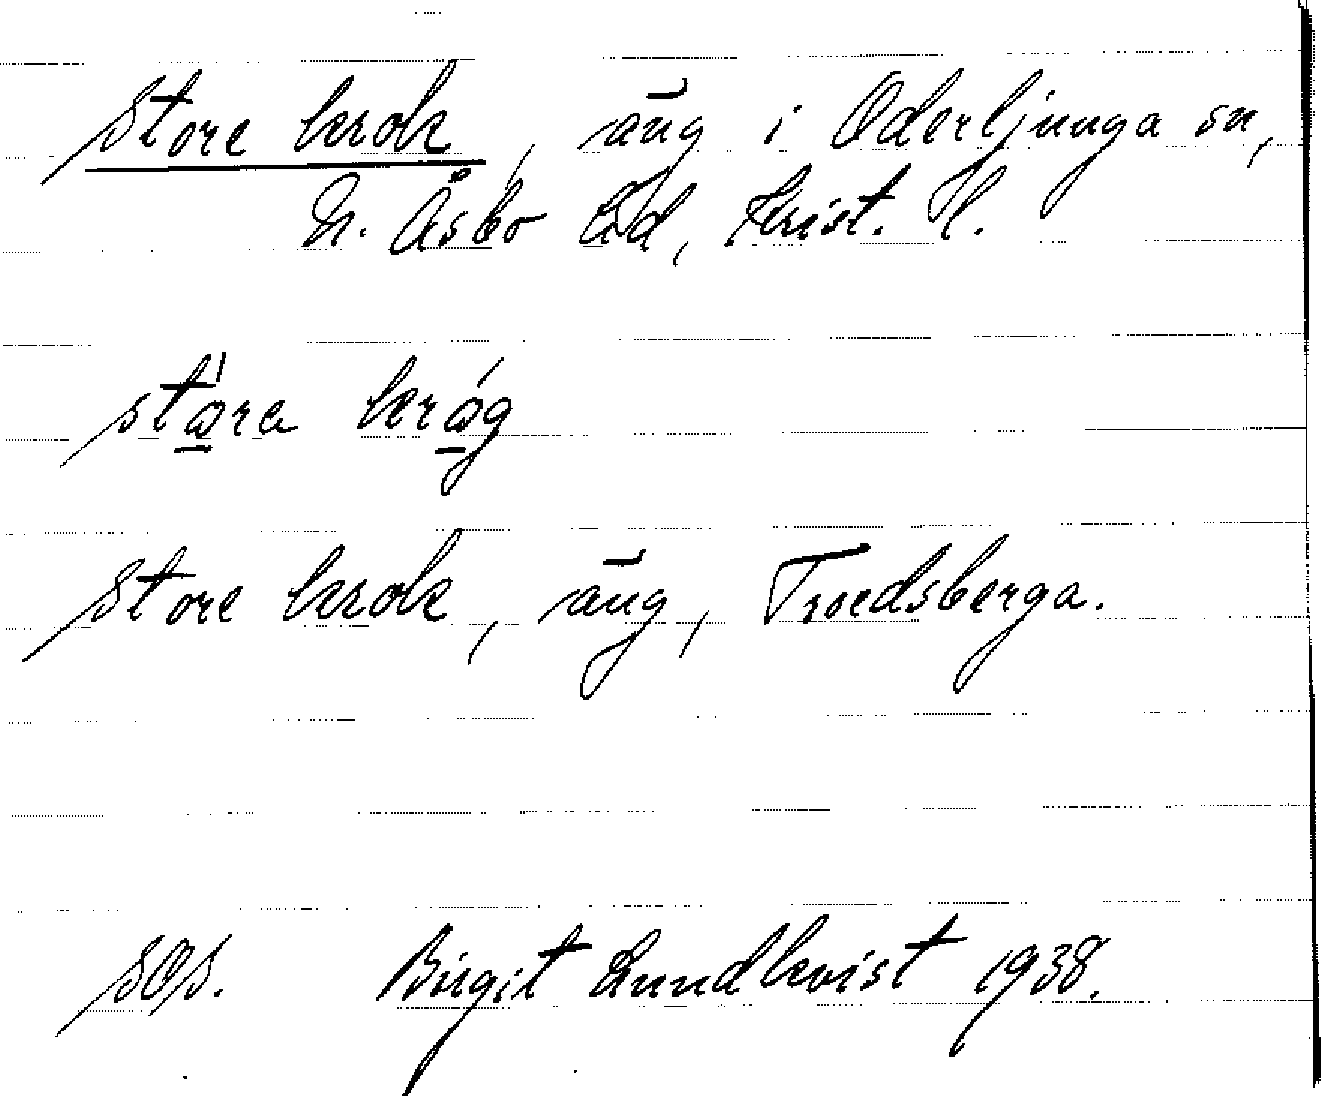 Store krok, äng i Oderljunga sn,
N. Åsbo hd, Krist. l.
störa króg
Store krok, äng, Troedsberga.
sës. Birgit Lundkvist 1938.